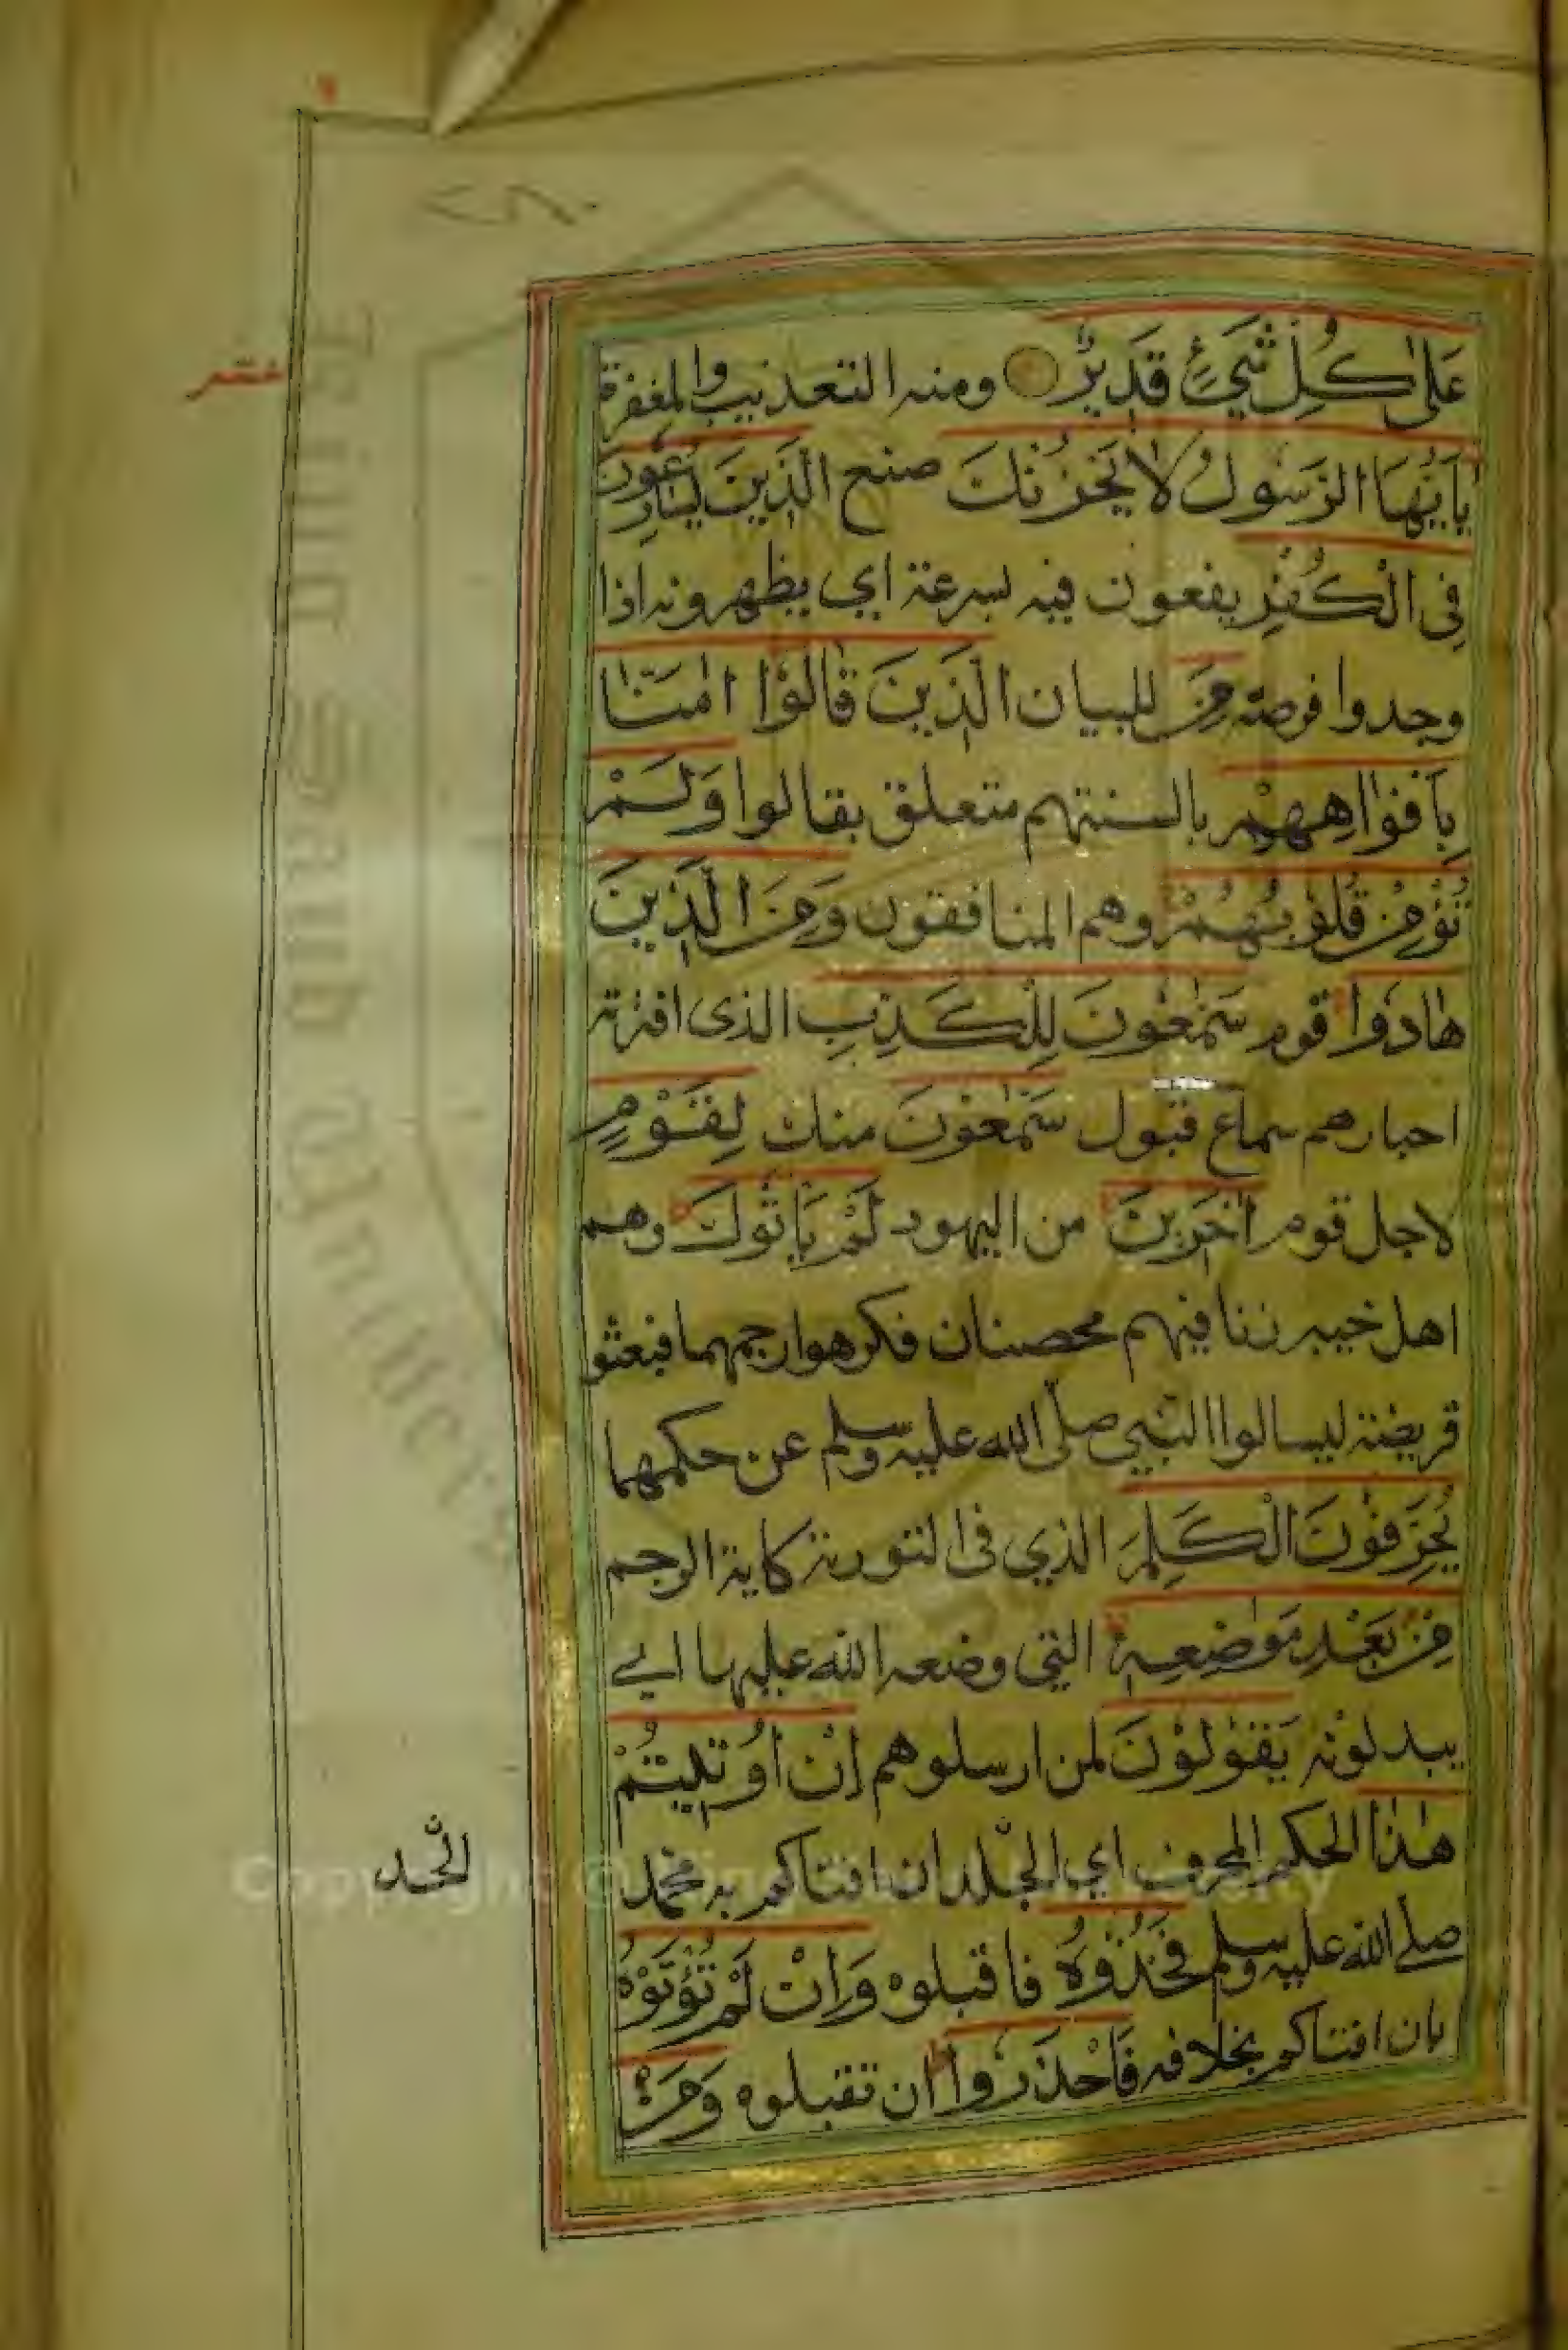 عشر
عَلٰى كُلِّ شَيْءٍ قَدِيْرٌ ومنه التعذيب والمغفرة
يٰاَيُّهَا الرَّسُوْلُ لَا يَحْزُنْكَ صنع الَّذِيْنَ يُسَارِعُوْنَ
فِى الْكُفْرِ يقعون فيه بسرعة اي يظهرونه اذا
وجدوا فرصة مِنَ للبيان الَّذِيْنَ قَالُوْا اٰمَنَّا
بِاَفْوَاهِهِمْ بالسنتهم متعلق بقالوا وَلَمْ
تُؤْمِنْ قُلُوْبُهُمْ وهم المنافقون وَمِنَ الَّذِيْنَ
هَادُوْا قوم سَمّٰعُوْنَ لِلْكَذِبِ الذى افترته
احبارهم سماع قبول سَمّٰعُوْنَ منك لِقَوْمٍ
لاجل قوم اٰخَرِيْنَ من اليهود لَمْ يَاْتُوْكَ وهم
اهل خيبر زنا فيهم محصنان فكرهوا رجمهما فبعثو
قريظة ليسالوا النبي صلّى الله عليه وسلم عن حكمهما
يُحَرِّفُوْنَ الْكَلِمَ الذي فى التورية كاية الرجم
مِنْ بَعْدِ مَوَاضِعِهٖ التي وضعه الله عليها اي
يبدلونه يَقُوْلُوْنَ لمن ارسلوهم اِنْ اُوْتِيْتُمْ
هٰذَا الحكم المحرف اي الجلد ان افتاكم به محمد
الجلد
صلى الله عليه وسلم فَخُذُوْهُ فاقبلوه وَاِنْ لَمْ تُؤْتَوْهُ
بان افتاكم بخلافه فَاحْذَرُوْا ان تقبلوه وَمَنْ
Copyright © King Saud University